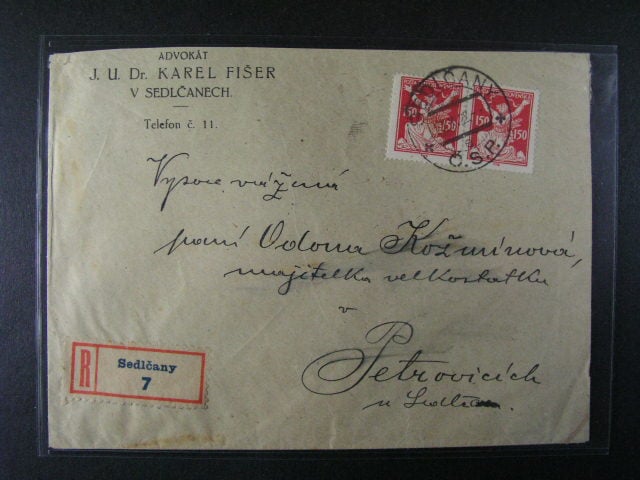 ADVOKÁT
J. U. Dr. KAREL FIŠER
V SEDLČANECH.
Telefon č. 11.
150 150 150 150
SEDLČANY
Č.S.P.
Vysoce vážená
paní Odona Kožmínová,
majitelka velkostatku
v
Petrovicích
u Sedlčan.
R Sedlčany
7